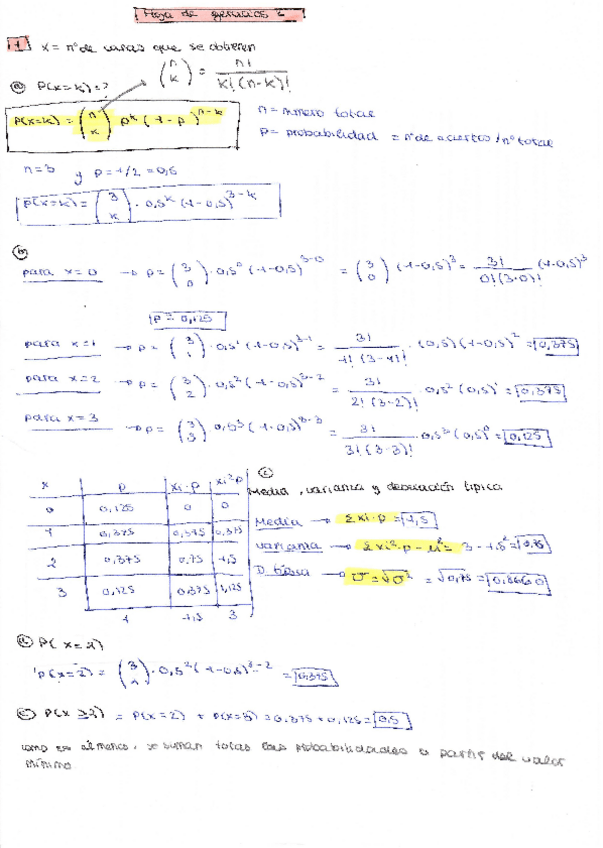 Hoja de ejercicios 2
1 x = nº de varas que se obtienen
(n k) = n! / k!(n-k)!
a) P(x=k)=?
P(x=k) = (n k) p^k (1-p)^n-k
n = número total
p = probabilidad = nº de aciertos / nº total
n=3 y p=1/2 = 0,5
p(x=k) = (3 k) · 0,5^k (1-0,5)^3-k
b)
para x=0 → p = (3 0) · 0,5^0 (1-0,5)^3-0 = (3 0) (1-0,5)^3 = 3! / 0!(3-0)! (1-0,5)^3
p = 0,125
para x=1 → p = (3 1) · 0,5^1 (1-0,5)^3-1 = 3! / 1!(3-1)! · (0,5)(1-0,5)^2 = 0,375
para x=2 → p = (3 2) · 0,5^2 (1-0,5)^3-2 = 3! / 2!(3-2)! · 0,5^2 (0,5)^1 = 0,375
para x=3 → p = (3 3) 0,5^3 (1-0,5)^3-3 = 3! / 3!(3-3)! 0,5^3 (0,5)^0 = 0,125
c)
Media, varianza y desviación típica
x p xi·p xi²·p
0 0,125 0 0
1 0,375 0,375 0,375
2 0,375 0,75 1,5
3 0,125 0,375 1,125
1 1,5 3
Media → Σxi·p = 1,5
Varianza → Σxi²·p - μ² = 3 - 1,5² = 0,75
D. típica → σ = √σ² = √0,75 = 0,8660
d) P(x=2)
p(x=2) = · 0,5^2 (1-0,5)^3-2 = 0,375
e) P(x≥2) = P(x=2) + P(x=3) = 0,375 + 0,125 = 0,5
como es al menos, se suman todas las probabilidades a partir del valor
mínimo.